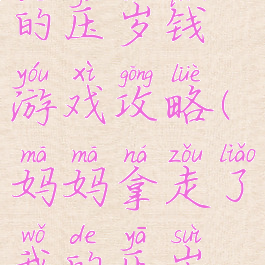 的压岁钱
yóu xì gōng lüè
游戏攻略(
mā mā ná zǒu liǎo
妈妈拿走了
wǒ de yā suì
我的压岁